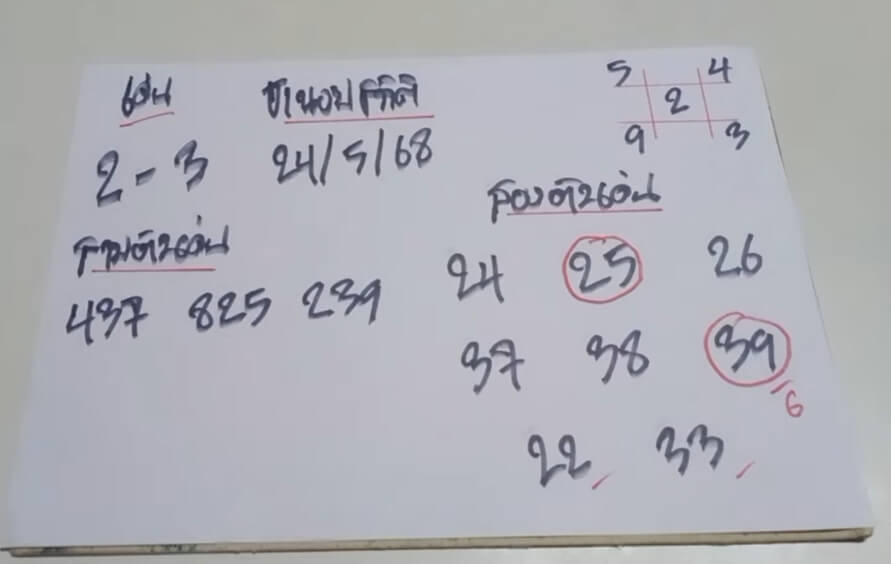 เด่น
2 - 3
ฮานอยปกติ
24/5/68
5 4
2
9 3
สามตัวเด่น
437 825 239
สองตัวเด่น
24 25 26
37 38 39
6
22 33